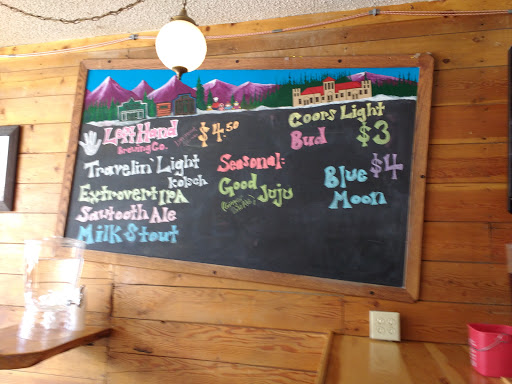 Left Hand $4.50
Brewing Co.
Travelin' Light
Kolsch
Extrovert IPA
Sawtooth Ale
Milk Stout
Seasonal:
Good
Juju
Coors Light
Bud $3
Blue $4
Moon